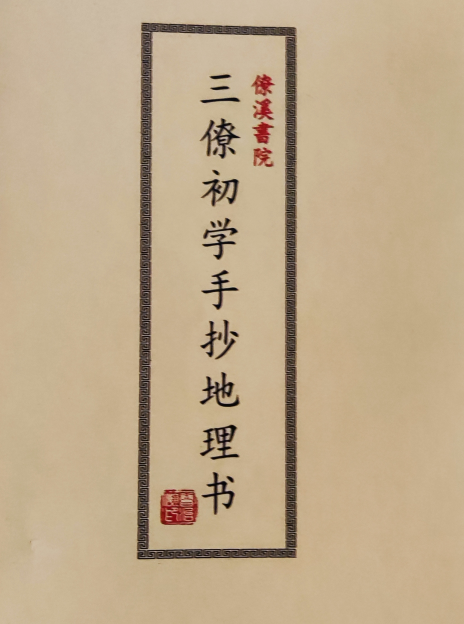 僚溪書院
三僚初学手抄地理书